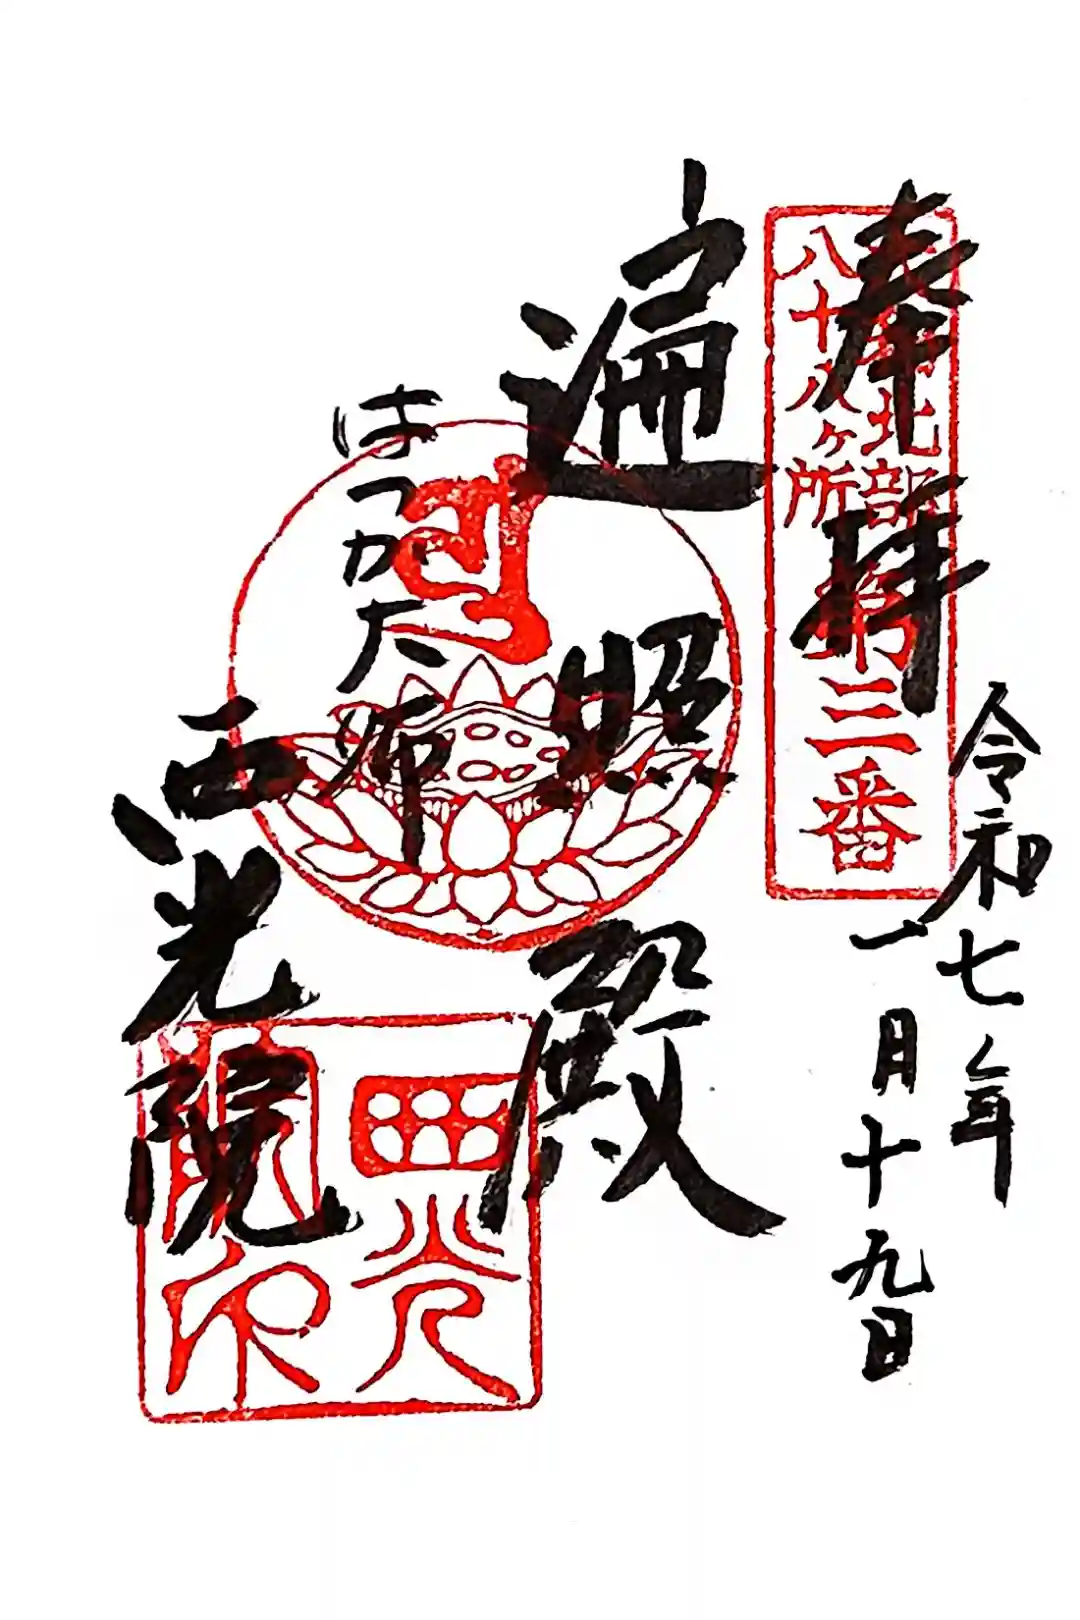 奉拝
北部
八十八ヶ所
第三番
令和七年
一月十九日
遍照殿
はっか大師
西光院
西光
院印